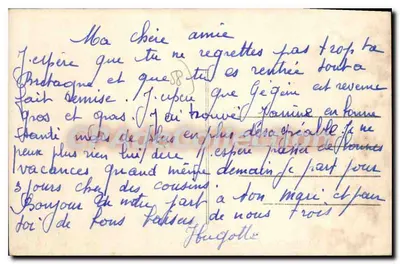 Ma chère amie
J'espère que tu ne regrettes pas trop ta
Bretagne et que tu es rentrée tout a
fait remise. J'espère que Gégène est revenue
gros et gras. J'ai trouvé Jannine en bonne
santé mais de plus en plus désagréable je ne
peux plus rien lui dire. J'espère passer de bonnes
vacances quand même demain je part pour
3 jours chez des cousins.
Bonjour de notre part a ton mari et pour
toi de bons baisers de nous trois